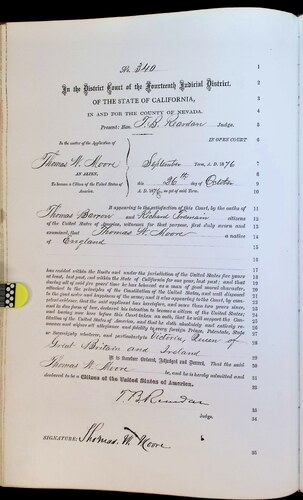 No. 340
In the District Court of the Fourteenth Judicial District,
OF THE STATE OF CALIFORNIA,
IN AND FOR THE COUNTY OF NEVADA.
Present: Hon. T. B. Reardan Judge.
In the matter of the Application of IN OPEN COURT
Thomas W. Moore September Term, A. D. 1876
AN ALIEN,
To become a Citizen of the United States of America. this 26th day of October
A. D. 1876 as yet of said Term.
It appearing to the satisfaction of this Court, by the oaths of
Thomas Barron and Richard citizens
of the United States of America, witnesses for that purpose, first duly sworn and
examined, that Thomas W. Moore a native
of England
has resided within the limits and under the jurisdiction of the United States five years
at least, last past, and within the State of California for one year, last past; and that
during all of said five years' time he has behaved as a man of good moral character,
attached to the principles of the Constitution of the United States, and well disposed
to the good order and happiness of the same; and it also appearing to the Court, by com-
petent evidence, that the said applicant has heretofore, and more than two years since,
and in due form of law, declared his intention to become a citizen of the United States,
and having now here before this Court taken an oath, that he will support the Con-
stitution of the United States of America, and that he doth absolutely and entirely re-
nounce and abjure all allegiance and fidelity to every foreign Prince, Potentate, State
or Sovereignty whatever, and particularly to Victoria Queen of
Great Britain and Ireland
It is therefore Ordered, Adjudged and Decreed, That the said
Thomas W. Moore be, and he is hereby admitted and
declared to be a Citizen of the United States of America.
T. B. Reardan
Judge.
SIGNATURE: Thomas W. Moore
1
2
3
4
5
6
7
8
9
10
11
12
13
14
15
16
17
18
19
20
21
22
23
24
25
26
27
28
29
30
31
32
33
34
35